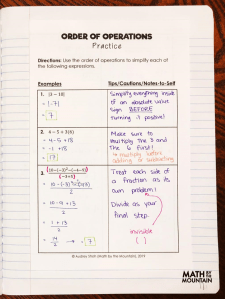 ORDER OF OPERATIONS
Practice
Directions: Use the order of operations to simplify each of
the following expressions.
Examples
Tips/Cautions/Notes-to-Self
1. |3 – 10|
= |-7|
= 7
Simplify everything inside
of an absolute value
sign BEFORE
turning it positive!
2. 4 – 5 + 3(6)
= 4 - 5 + 18
= -1 + 18
= 17
Make sure to
multiply the 3 and
the 6 first!
multiply before
adding or subtracting
3.
= 10 - 9 + 13
2
= 1 + 13
2
= 14
2
→ = 7
Treat each side
of a fraction as its
own problem!
Divide as your
final step.
invisible
( )
MATH BY THE
MOUNTAIN